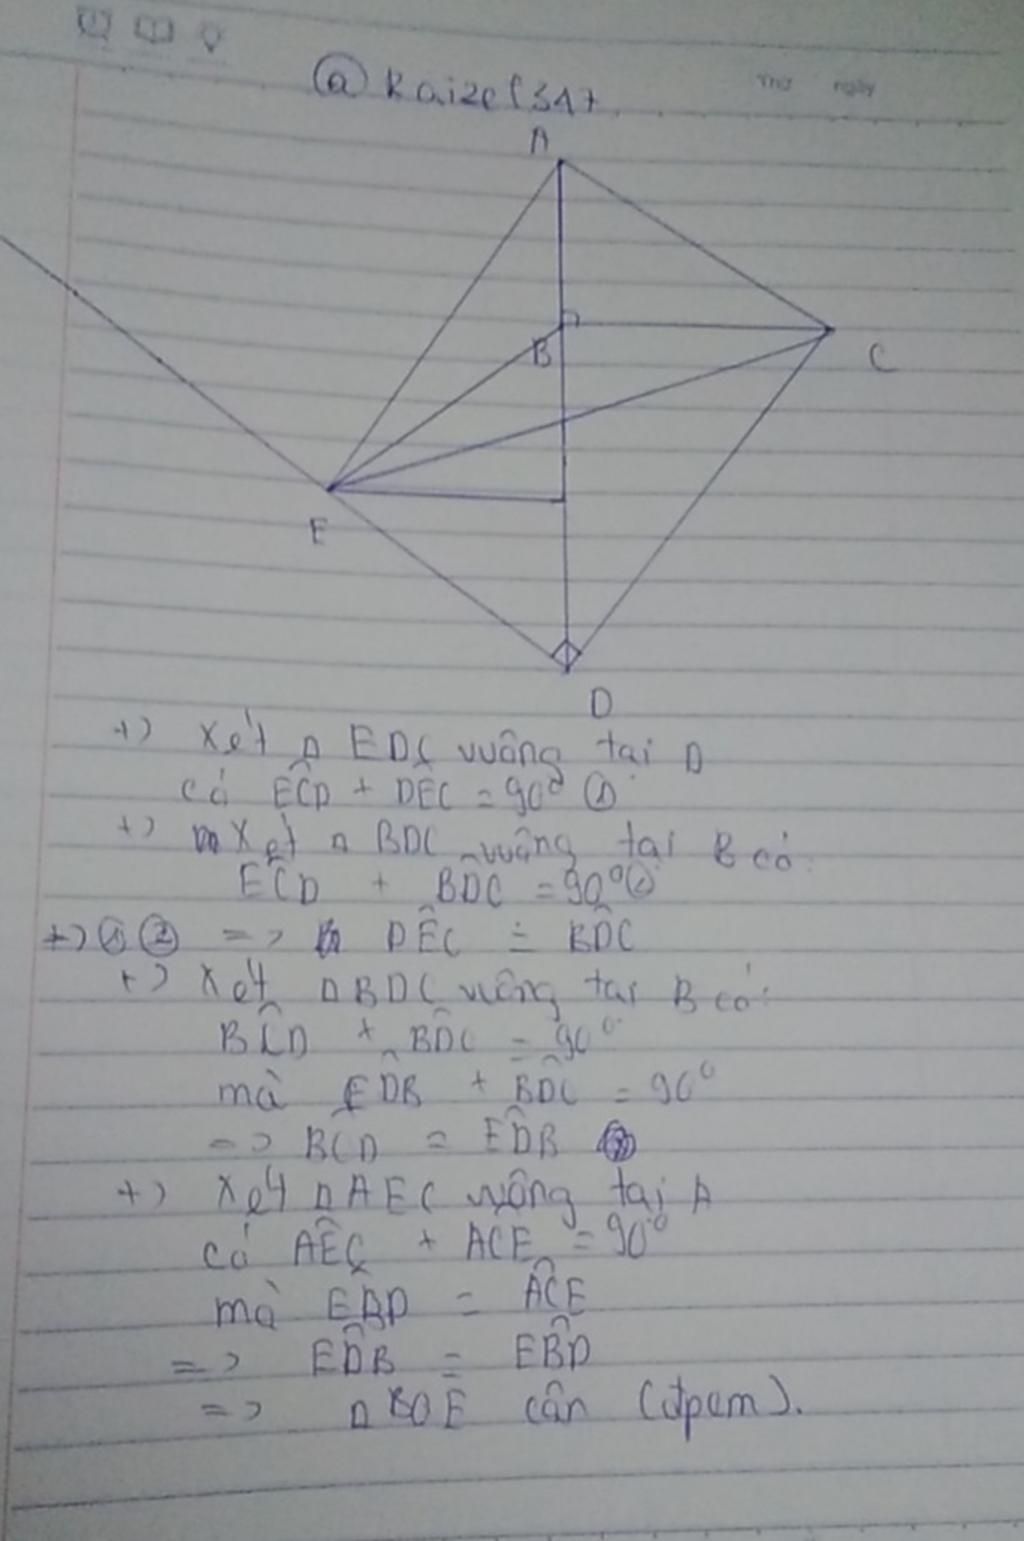 @Raizel347
Thứ ngày
A
B
C
E
D
+) Xét Δ EDC vuông tại D
có EĈD + DÊC = 90° ①
+) Xét Δ BDC vuông tại B có:
EĈD + BD̂C = 90° ②
+) ① ② => DÊC = BD̂C
+) Xét ΔBDC vuông tại B có:
BĈD + BD̂C = 90°
mà ED̂B + BD̂C = 90°
=> BĈD = ED̂B
+) Xét ΔAEC vuông tại A
có AÊC + ACE = 90°
mà EBD = AĈE
=> ED̂B = EB̂D
=> ΔBDE cân (đpcm).